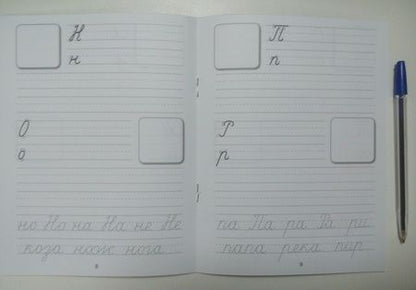 Н
н
О
о
но Но на На не Не
коза нож нога
П
п
Р
р
па Па ра Ра ри
папа река пир